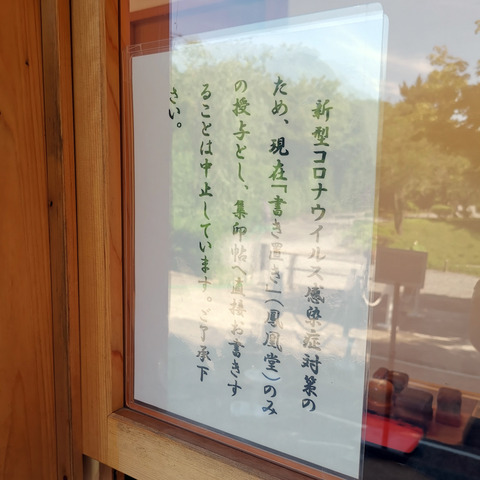 新型コロナウイルス感染症対策の
ため、現在「書き置き」(鳳凰堂)のみ
の授与とし、集印帖へ直接お書きす
ることは中止しています。ご了承下
さい。